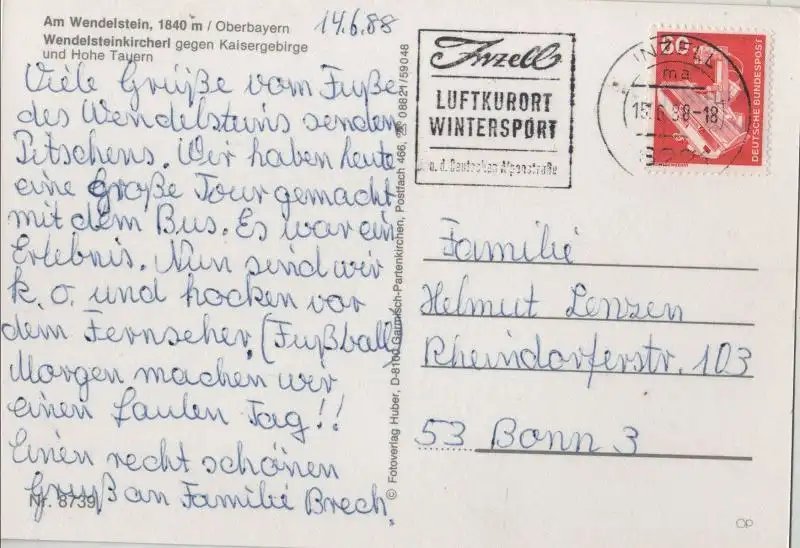 Am Wendelstein, 1840 m / Oberbayern
Wendelsteinkircherl gegen Kaisergebirge
und Hohe Tauern
14.6.88
Viele Grüße vom Fuße
des Wendelsteins senden
Pitschens. Wir haben heute
eine Große Tour gemacht
mit dem Bus. Es war ein
Erlebnis. Nun sind wir
k. o. und hocken vor
dem Fernseher. (Fußball)
Morgen machen wir
einen faulen Tag!!
Einen recht schönen
Gruß an Familie Brech.
Nr. 8739
© Fotoverlag Huber, D-8100 Garmisch-Partenkirchen, Postfach 466, ☎ 08821/59048
Inzell
LUFTKURORT
WINTERSPORT
a. d. Deutschen Alpenstraße
INZELL
ma
15.6.88-18
80
DEUTSCHE BUNDESPOST
Familie
Helmut Lenzen
Rheindorferstr. 103
53 Bonn 3
OP